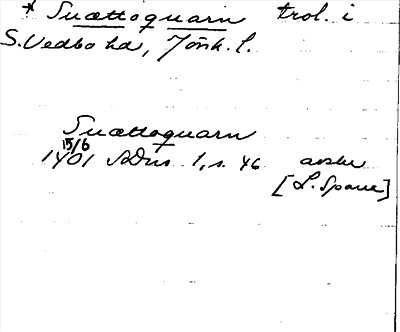 * Suættoquarn trol. i
S. Vedbo hd, Jönk. l.
Suættoquarn
15/6
1401 SDns 1, s. 46 avskr
[L. Spane]